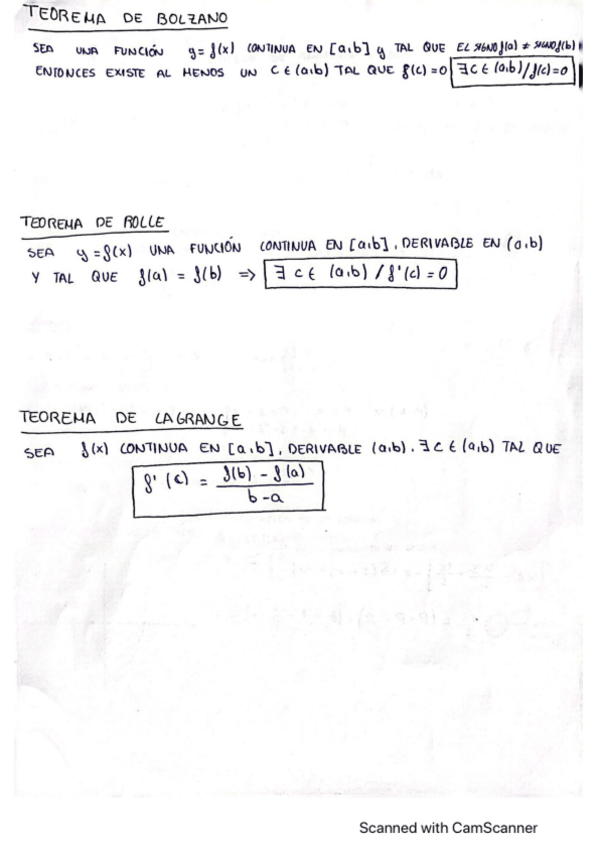 TEOREMA DE BOLZANO
SEA UNA FUNCIÓN y=f(x) CONTINUA EN [a,b] y TAL QUE EL SIGNO f(a) ≠ SIGNO f(b)
ENTONCES EXISTE AL MENOS UN C ∈ (a,b) TAL QUE f(c)=0 ∃ C ∈ (a,b)/f(c)=0
TEOREMA DE ROLLE
SEA y=f(x) UNA FUNCIÓN CONTINUA EN [a,b], DERIVABLE EN (a,b)
Y TAL QUE f(a) = f(b) => ∃ c ∈ (a,b) / f'(c) = 0
TEOREMA DE LAGRANGE
SEA f(x) CONTINUA EN [a,b], DERIVABLE (a,b). ∃ C ∈ (a,b) TAL QUE
f'(c) = f(b) - f(a) / b-a
Scanned with CamScanner